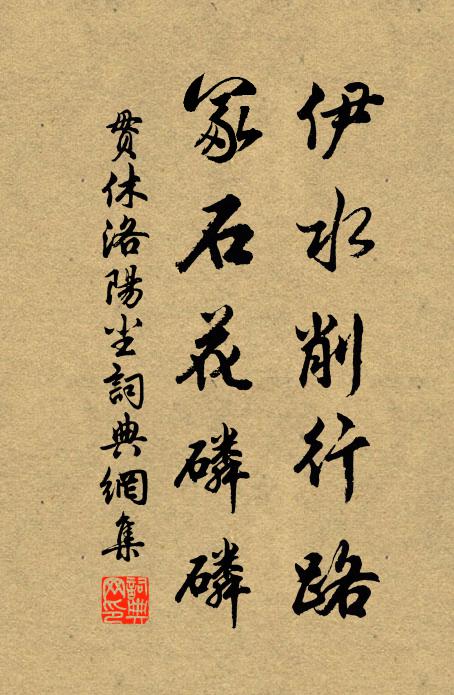 伊水削行路
冢石花磷磷
貫休洛陽尘詞典網集
詞典网印